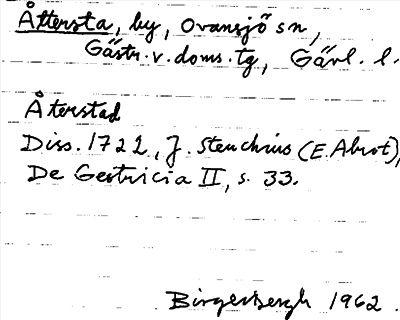 Åttersta, by, Ovansjö sn,
Gästr. v. doms. tg, Gävl. l.
Återstad
Diss. 1722, J. Steuchius (E. Abrot),
De Gestricia II, s. 33.
Birgerbergh 1962.